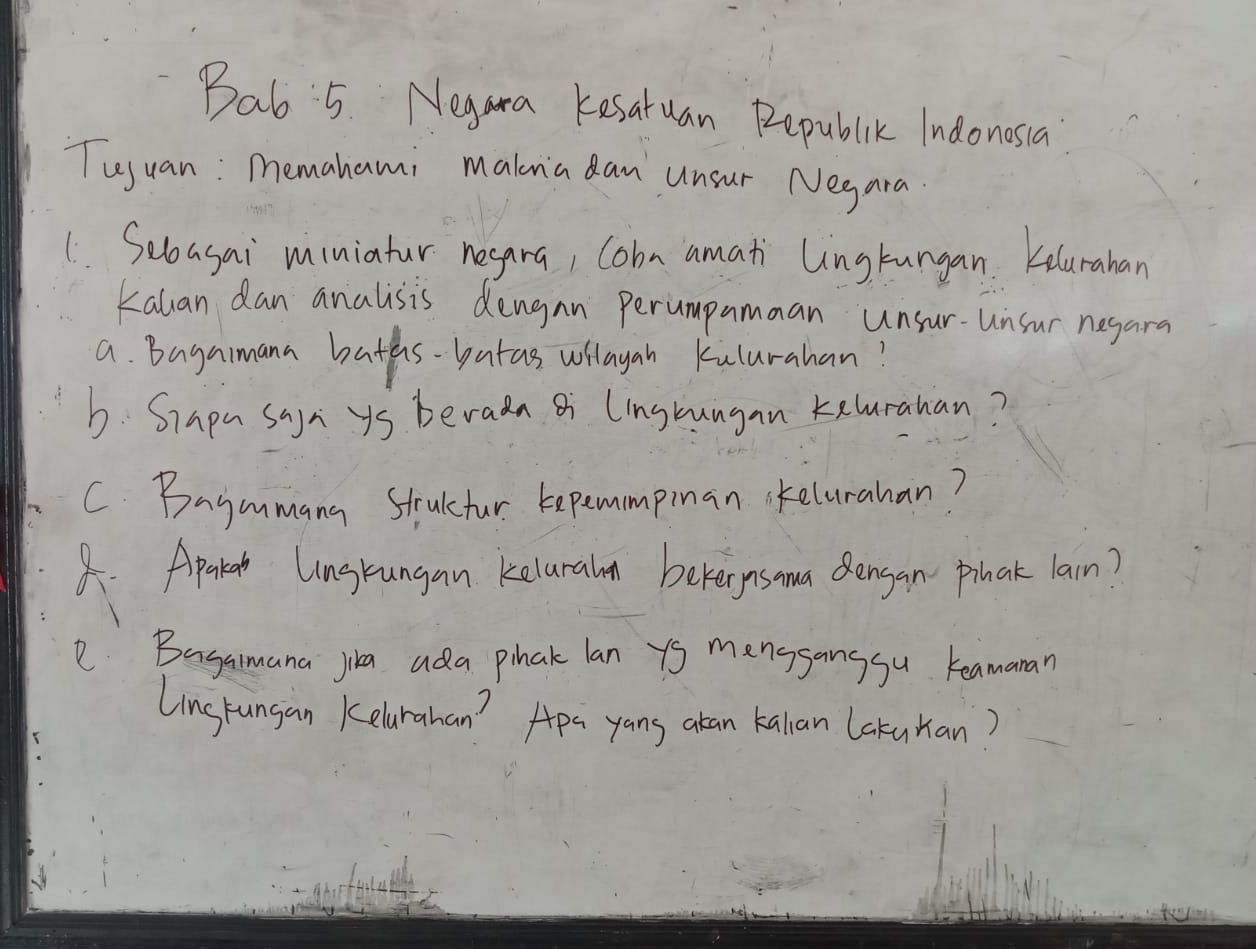 Bab 5. Negara Kesatuan Republik Indonesia
Tujuan : Memahami Makna dan Unsur Negara.
1. Sebagai miniatur negara, Coba amati lingkungan Kelurahan
Kalian dan analisis dengan perumpamaan unsur-unsur negara
a. Bagaimana batas-batas wilayah Kulurahan?
b. Siapa saja yg berada di lingkungan kelurahan?
c. Bagaimana struktur kepemimpinan kelurahan?
d. Apakah lingkungan kelurahn bekerjasama dengan pihak lain?
e. Bagaimana jika ada pihak lan yg mengganggu keamanan
lingkungan Kelurahan? Apa yang akan kalian lakukan?